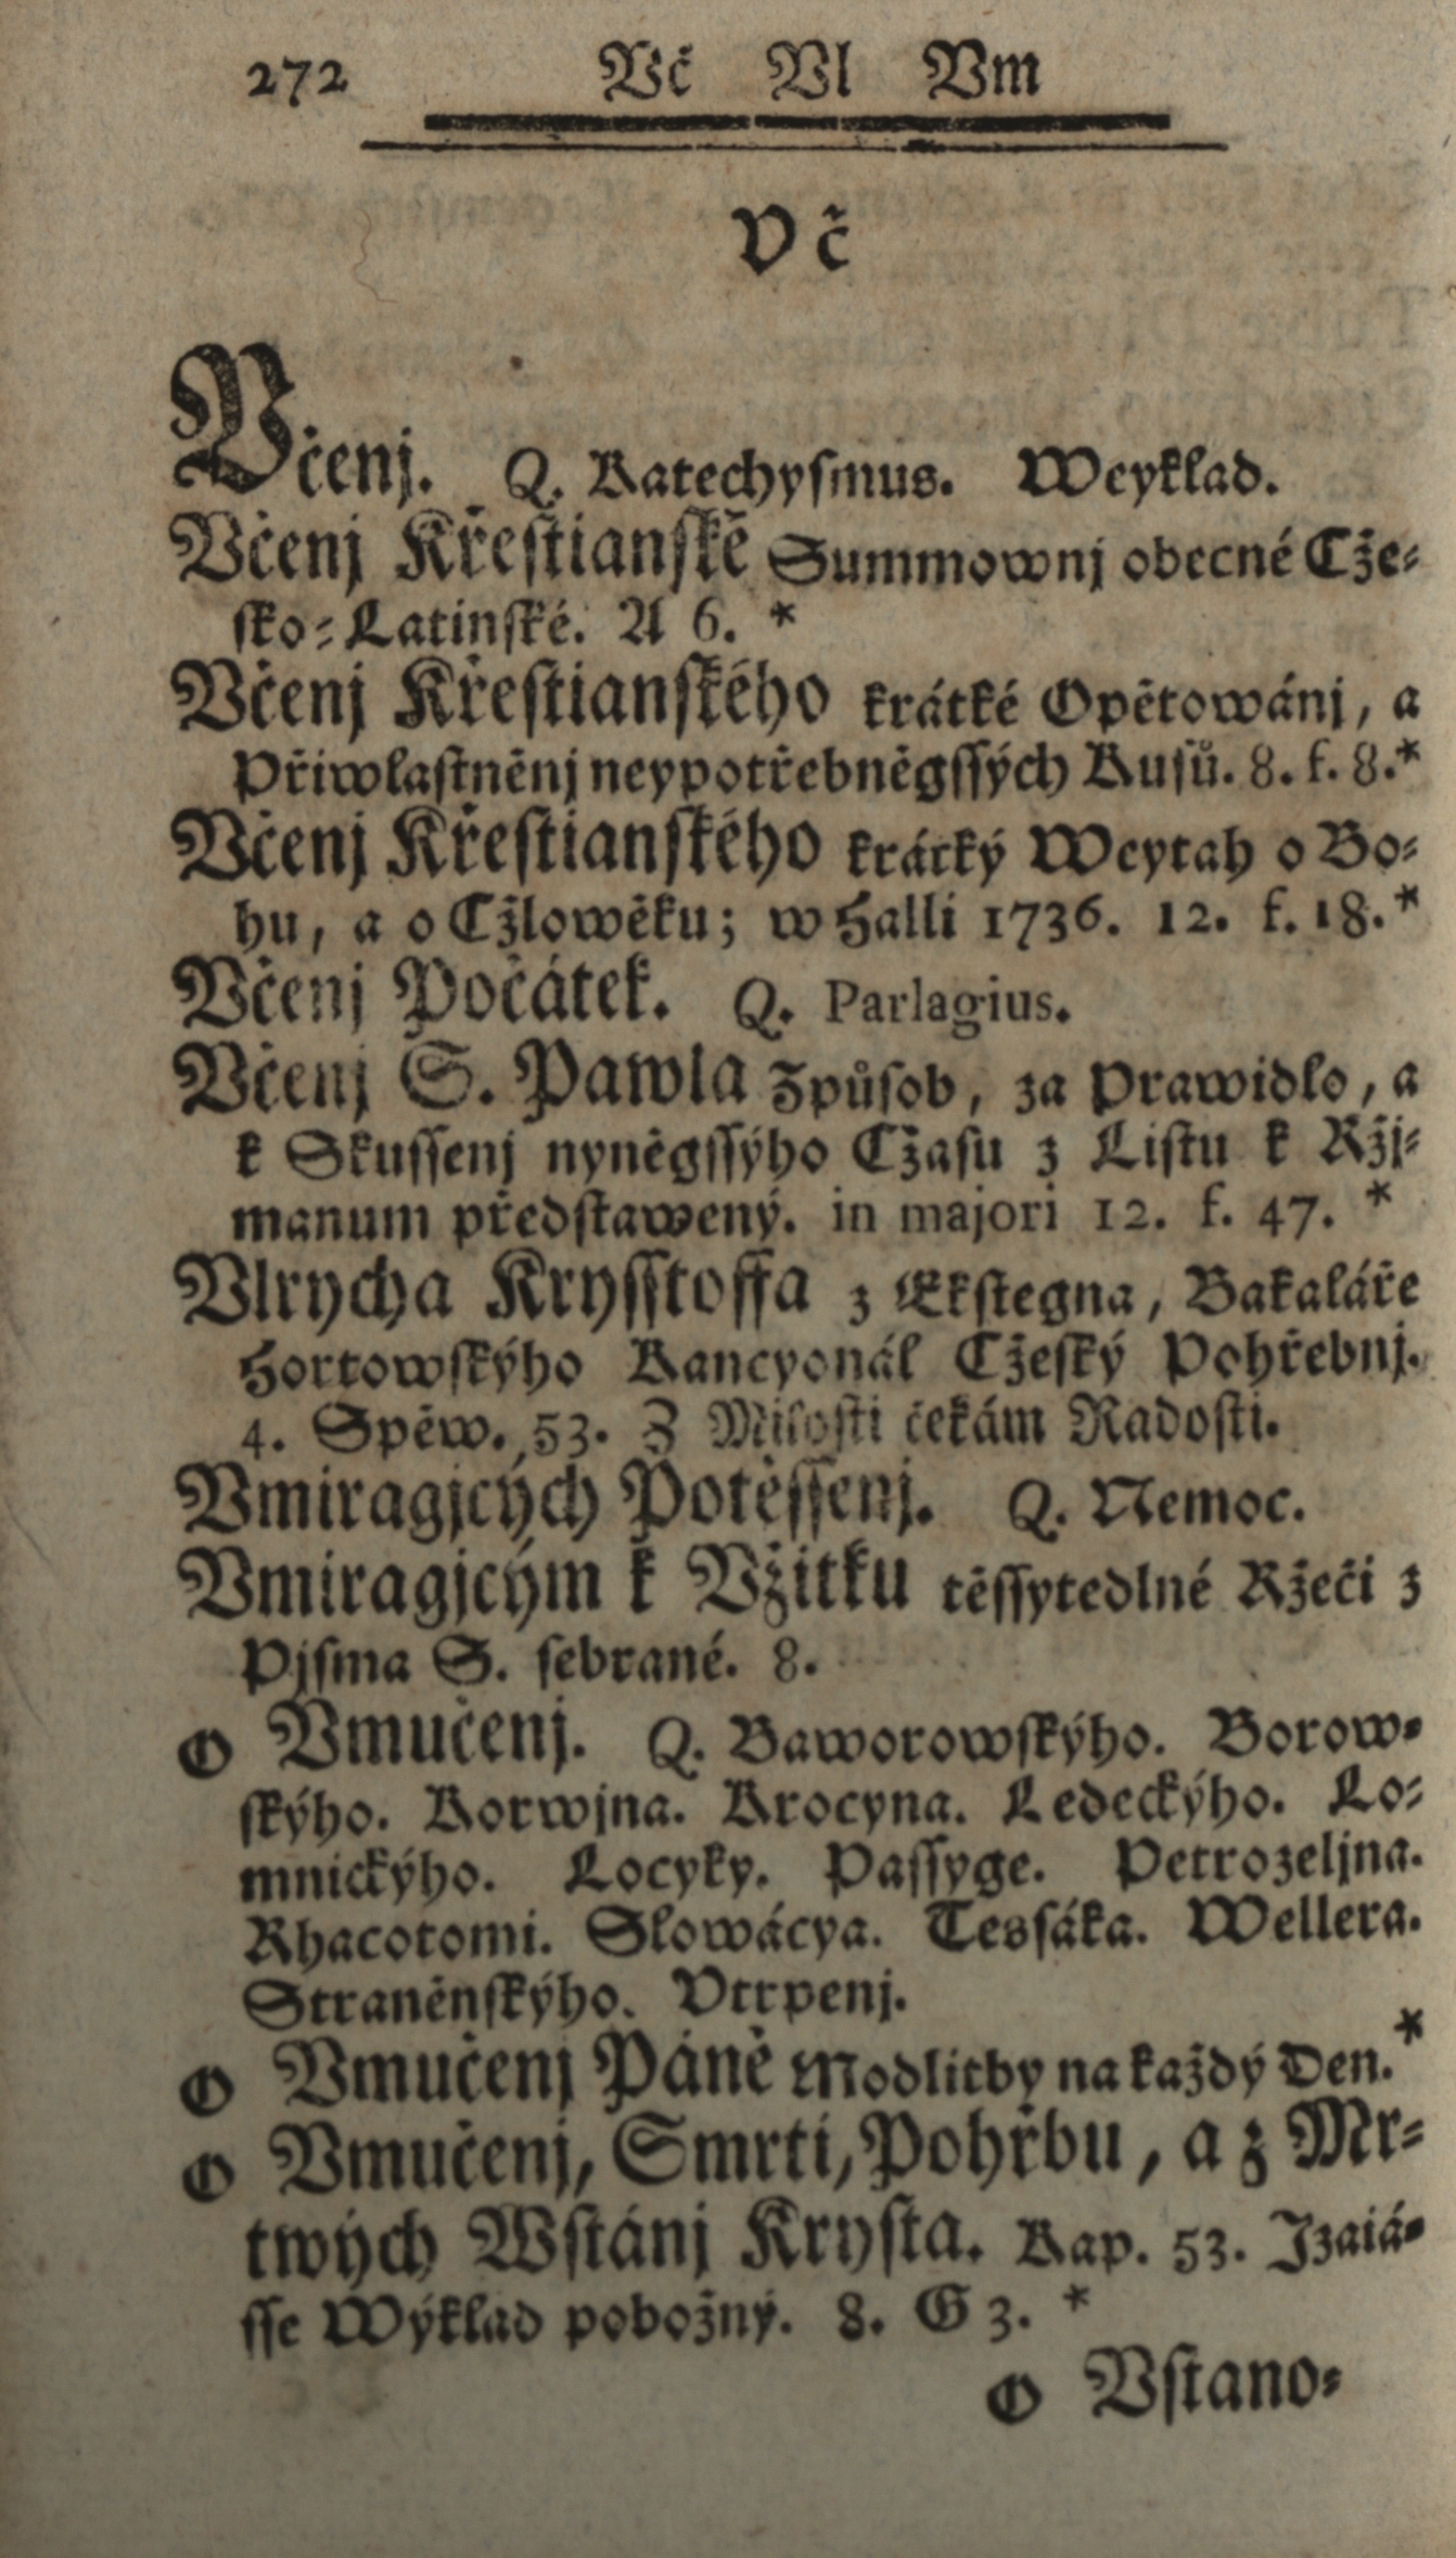 272 Vč Vl Vm
Vč
Včenj. Q. Katechyſmus. Weyklad.
Včenj Křeſtianſké Summownj obecné Cže⸗
ſko⸗Latinſké. A 6. *
Včenj Křeſtianſkého krátké Opětowánj, a
Přiwlaſtněnj neypotřebněgſſých Kuſů. 8. f. 8.*
Včenj Křeſtianſkého krátký Weytah o Bo⸗
hu, a o Cžlowěku; w Halli 1736. 12. f. 18.*
Včenj Počátek. Q. Parlagius.
Včenj S. Pawla Způſob, za Prawidlo, a
k Skuſſenj nyněgſſýho Cžaſu z Liſtu k Ržj⸗
manum předſtawený. in majori 12. f. 47. *
Vlrycha Kryſſtoffa z Ekſtegna, Bakaláře
Hortowſkýho Kancyonál Cžeſký Pohřebnj.
4. Spěw. 53. Z Miloſti čekám Radoſti.
Vmiragjcých Potěſſenj. Q. Nemoc.
Vmiragjcým k Vžitku těſſytedlné Ržeči z
Pjſma S. ſebrané. 8.
O Vmučenj. Q. Baworowſkýho. Borow⸗
ſkýho. Korwjna. Krocyna. Ledeckýho. Lo⸗
mnickýho. Locyky. Paſſyge. Petrozeljna.
Rhacotomi. Slowácya. Tesſáka. Wellera.
Straněnſkýho. Vtrpenj.
O Vmučenj Páně Modlitby na každý Den.*
O Vmučenj, Smrti, Pohřbu, a z Mr⸗
twých Wſtánj Kryſta. Kap. 53. Izaiá⸗
ſſe Wýklad pobožný. 8. G 3. *
O Vſtano⸗